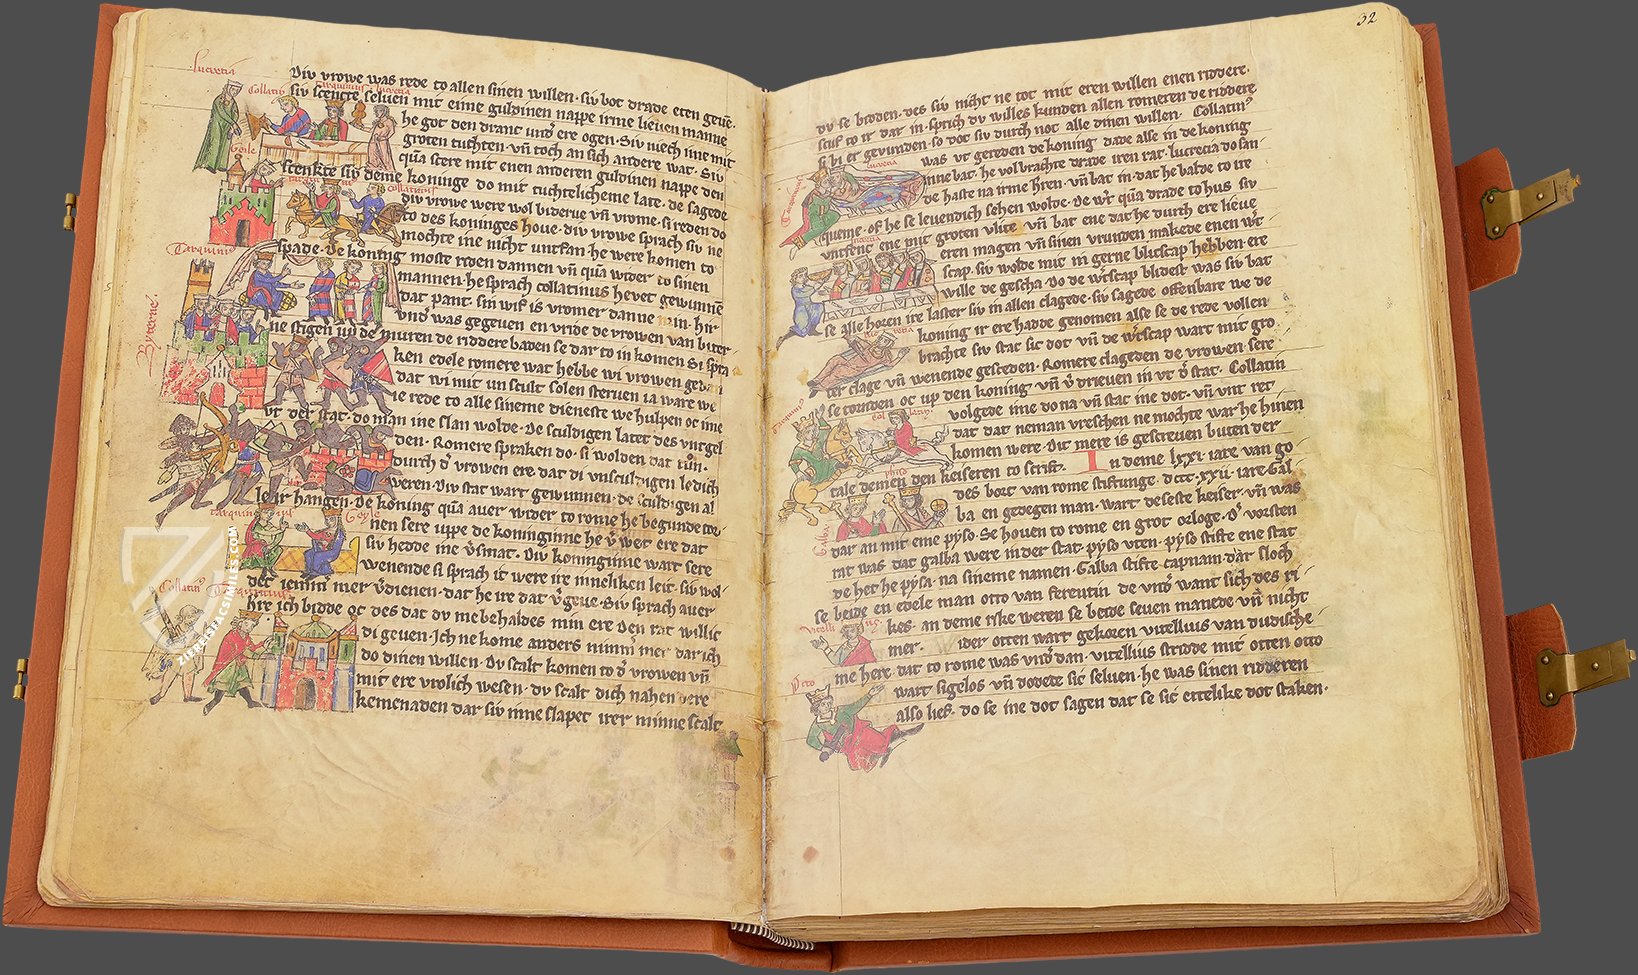 Lucretia
Collatin
tarquinius lucretia
Div vrowe was rede to allen sinen willen· siv bot drade eren geue·
siv scencte seluen mit eime guldinen nappe irme lieuen manne
he got den dranc und ere ogen· Siv niech ime mit
groten tuchten· vn̄ toch an sich andere wat· Siv
qua stere mit enen anderen guldinen nappe den
scenkte siv deme koninge do mit tuchtelicheme late· de sagede
collatinus
div vrowe were wol biderue vn̄ vrome· si reden do
to des koninges houe· div vrowe sprach siv ne
mochte ine nicht untfan he were komen to
Tarquinius
spade· De koning moste riden dannen vn̄ qua wider to sinen
mannen· he sprach collatinus hevet gewunnen
dat pant· sin wif is vromer danne min· hir
und was gegeuen en vride de vrowen van biter
Byterne
ne stigen up de muren de riddere baden se dar to in komen Si spra
ken edele romere wat hebbe wi vrowen gedan
dat wi mit unscult solen steruen ia ware we
ie rede to alle sineme dieneste we hulpen oc ime
vt der stat· do man ine slan wolde· De sculdigen latet des untgel
den· Romere spraken do· si wolden dat tun·
durch der vrowen ere dat di unsculdigen ledich
weren· Div stat wart gewunnen· de sculdigen al
le ir hangen· De koning qua auer wider to rome he begunde tor
tarquinius
nen sere uppe de koninginne he
siv hedde ine
Div koninginne wart sere
wenende si sprach it were ire inneliken leit· siv wol
det iemmer
dienen· dat he ire dat
Siv sprach auer
Collatin
Tarquinius
hire ich bidde oc des dat du me behaldes min ere Den rat willic
di geuen· Ich ne kome anders nimmer mer dar ich
do dinen willen· Dv scalt komen to der vrowen vn̄
mit ere vrolich wesen· du scalt dich nahen dere
kemenaden dar siv inne slapet irer minne scalt
32
dv se bidden· des siv nicht ne tot mit eren willen enen riddere·
scuf to ir dar in· sprich du willes kunden allen romeren de riddere
si bi er gevunden· so dot siv durch not alle dinen willen· Collatin
lucretia
was vt gereden de koning dade alse in de koning
Tarquinius
inne bat· he volbrachte drade iren rat· lucretia do san
de haste na irme hren· vn̄ bat in· dat he balde to ire
queme· of he se leuendich sehen wolde· De
qua drade to hus siv
lucretia
untfenc ene mit groten vlite vn̄ bat ene dat he durch ere lieue
eren magen vn̄ sinen vrunden makede enen
scap· siv wolde mit in gerne blitscap hebben· ere
wille de gescha· Do de
blidest was siv bat
se alle horen ire laster siv in allen clagede· siv sagede offenbare we de
lucretia
koning ir ere hadde genomen alse se de rede vollen
brachte siv stac sic dot vn̄ de
wart mit gro
ter clage vn̄ wenende gesceden· Romere clageden de vrowen sere
se counden oc up den koning· vn̄
drieuen in vt
stat· Collatin
tarquinius
Collatin
volgede ime do na vn̄ stac ine dot· vn̄ vnt ret
dat dat neman vreschen ne mochte war he hinen
komen were· Dit mere is gescreuen buten der
tale demen den keiseren to scrift· In deme lxxi iare van go
pyso
des bort van rome stiftunge· dccc·xxii· iare Gal
Galba
ba en gedegen man· wart deseste keiser· vn̄ was
dar an mit eme pyso· Se houen to rome en grot orloge·
vorsten
rat was dat galba were in der stat· pyso uten· pyso stifte ene stat
de het he pysa· na sineme namen· Galba stifte capuam·
sloch
se beide en edele man otto van ferentin· de
want sich des ri
Vitellius
kes· an deme rike weren se beide seuen manede vn̄ nicht
mer·
ider otten wart gekoren vitellius van dudische
me here· dat to rome was
dan· vitellius stridde mit otten otto
Otto
wart sigelos vn̄ dodete sic seluen· he was sinen ridderen
also lief· do se ine dot sagen dat se sic ertelike dot staken·
ZIEREIS FACSIMILES.COM